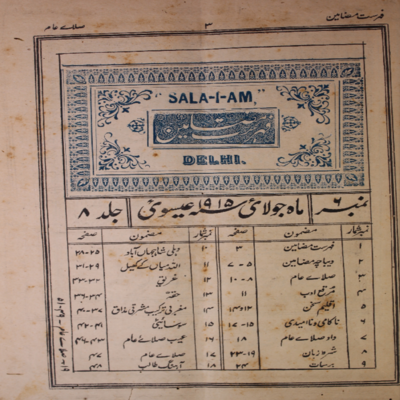 فہرست مضامین ۳ صلائے عام
"SALA-I-AM,"
فہرست مضامین
DELHI.
نمبر ۶ ماہ جولائی سنہ ۱۹۱۵ عیسوی جلد ۸
نمبر شمار مضمون صفحہ نمبر شمار مضمون صفحہ
۱ فہرست مضامین ۳ ۱۰ دہلی شاہجہاں آباد ۲۵-۲۸
۲ دیباچہ مضامین ۵-۷ ۱۱ اللہ میاں کے کھیل ۲۹-۳۱
۳ صلائے عام ۸-۱۰ ۱۲
۴ مرقع ادب ۱۱ ۱۳ حقہ
۵ اقلیم سخن ۱۴ مغربی ترکیب مشرقی مذاق
۶ ناکامی و ناامیدی ۱۵-۱۷ ۱۵ سوسائیٹی
۷ داد صلائے عام ۱۸ ۱۶ عیب صلائے عام
۸ شعر و زبان ۱۹-۲۳ ۱۷ صلائے عام ۴۷
۹ برسات ۲۴ ۱۸ آہنگ طالب ۴۸